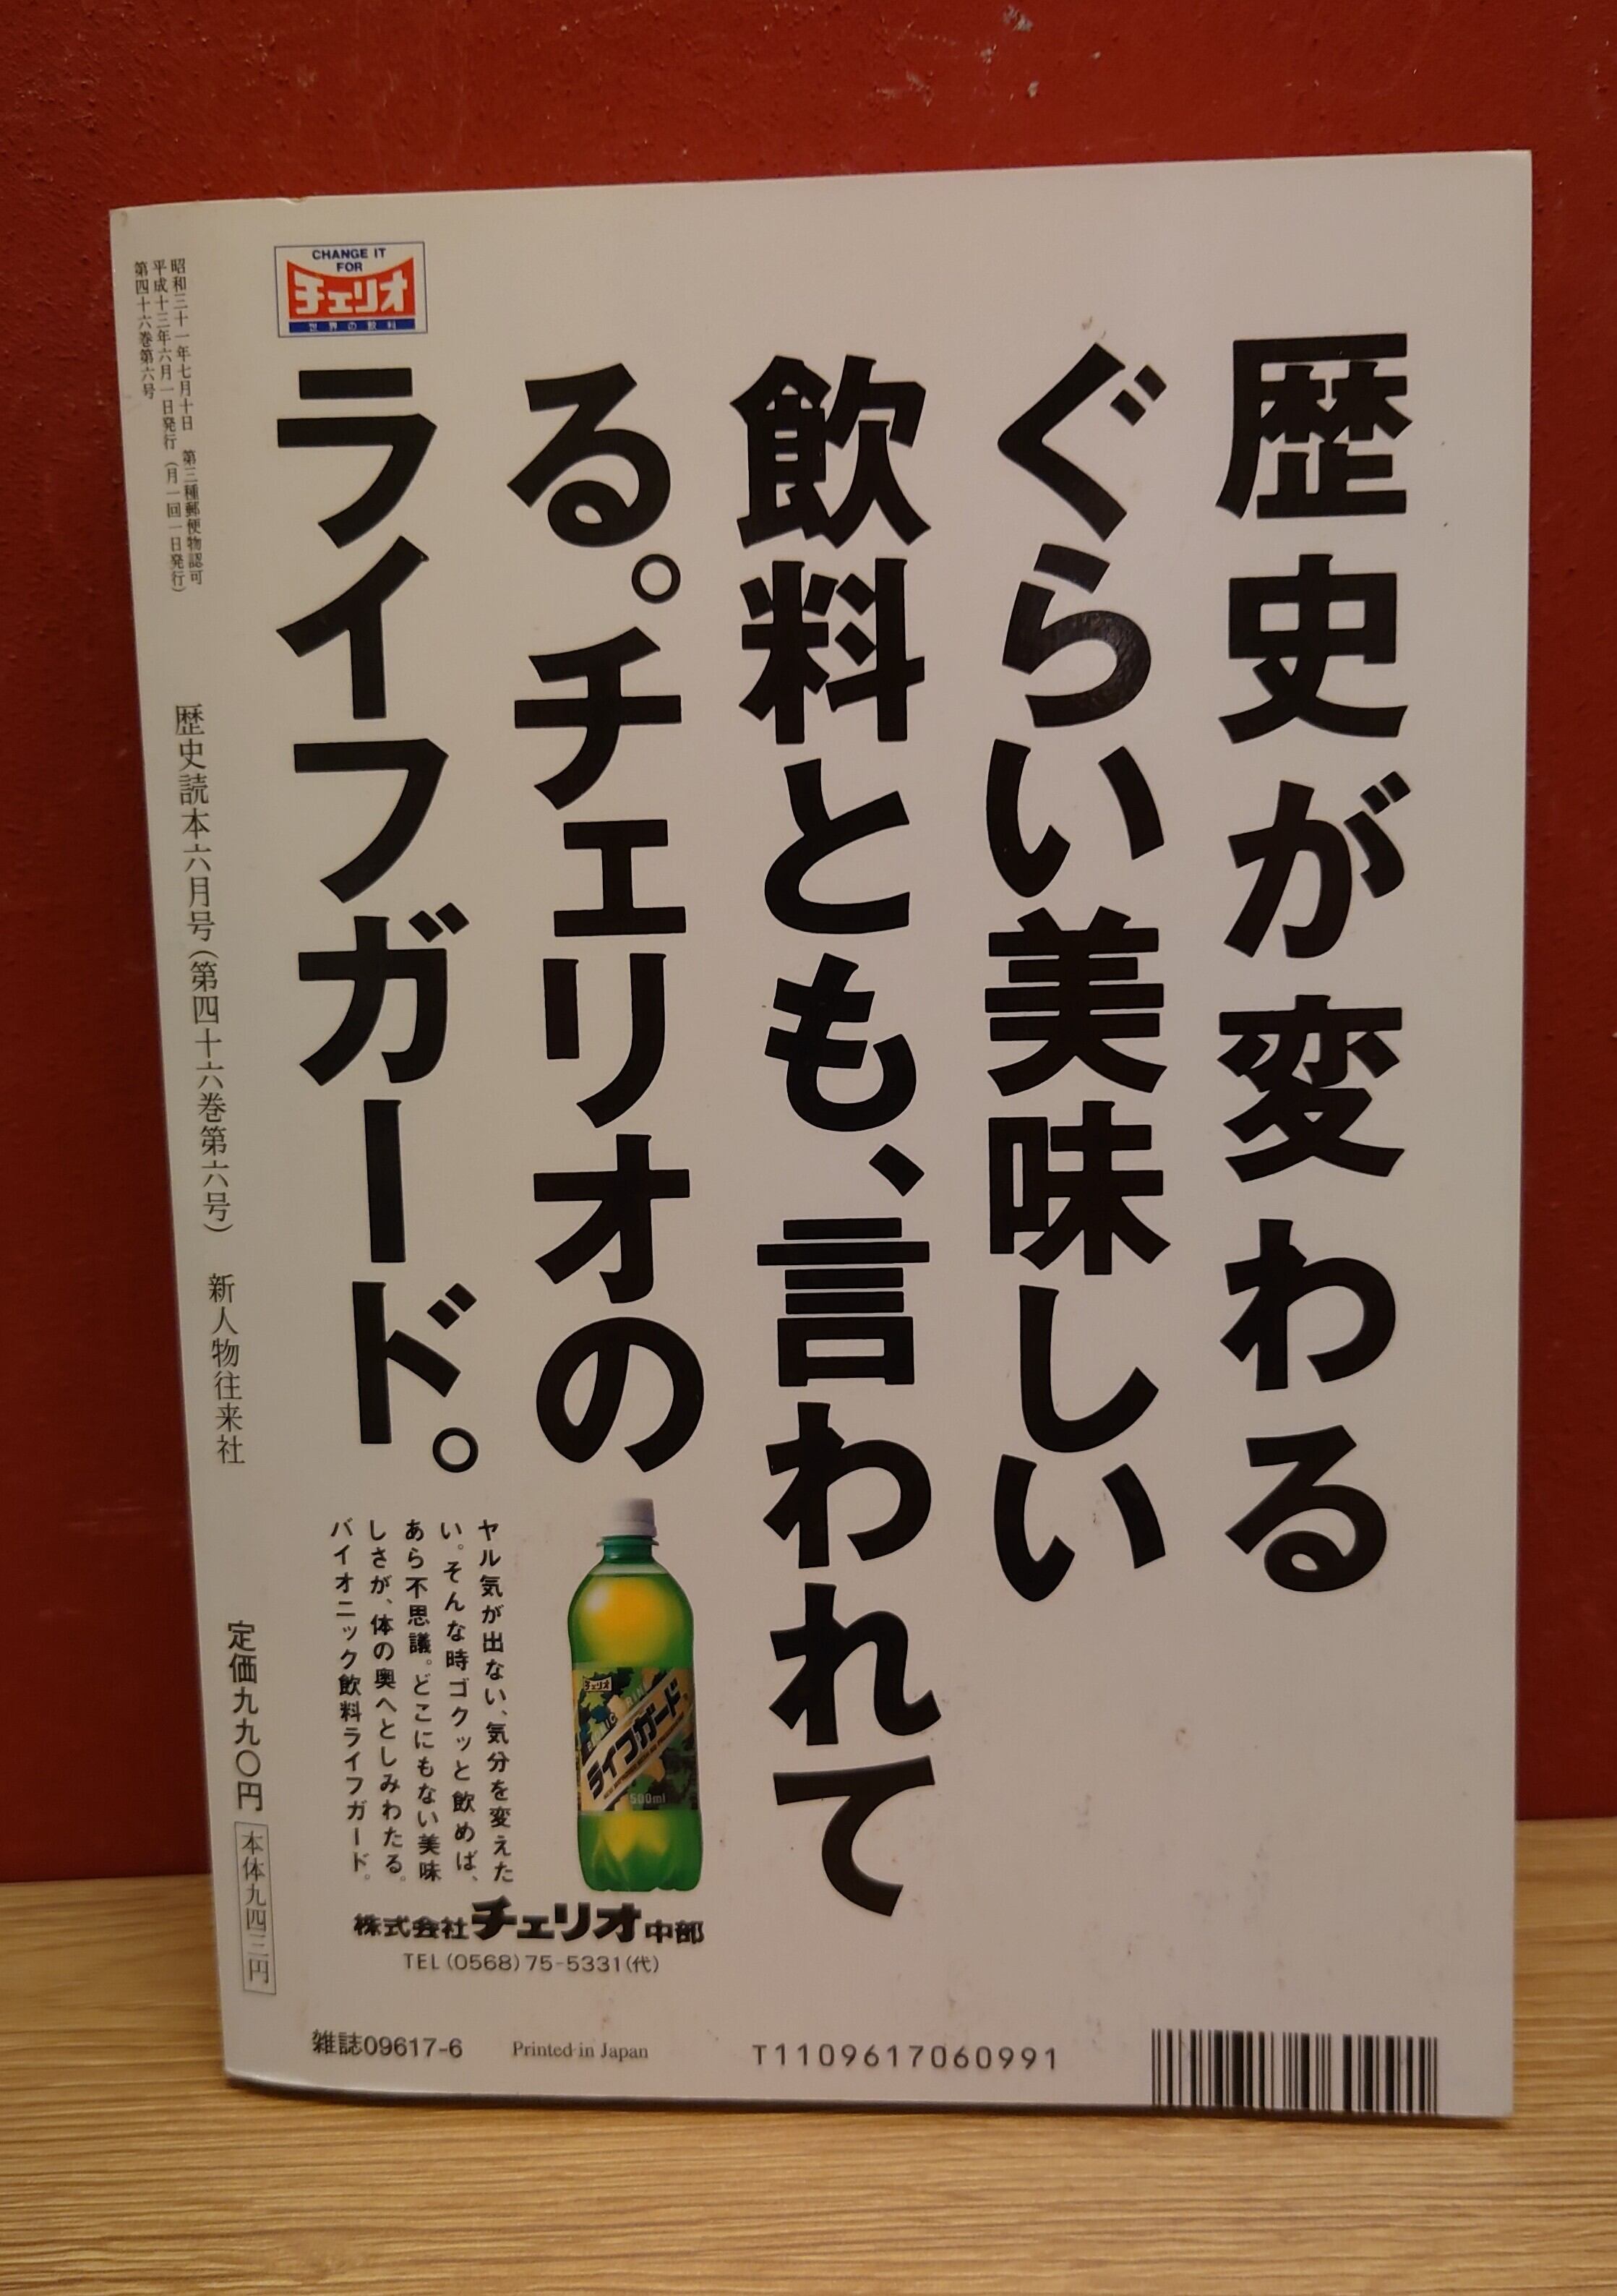 歴史が変わる
ぐらい美味しい
飲料とも、言われて
る。チェリオの
ライフガード。
CHANGE IT
FOR
チェリオ
世界の飲料
ヤル気が出ない、気分を変えた
い。そんな時ゴクッと飲めば、
あら不思議。どこにもない美味
しさが、体の奥へとしみわたる。
バイオニック飲料ライフガード。
チェリオ
ライフガード
500ml
株式会社チェリオ中部
TEL(0568)75-5331(代)
昭和三十一年七月十日 第三種郵便物認可
平成十三年六月一日発行(月一回一日発行)
第四十六巻第六号
歴史読本六月号(第四十六巻第六号) 新人物往来社 定価九九〇円 本体九四三円
雑誌09617-6
Printed in Japan
T1109617060991